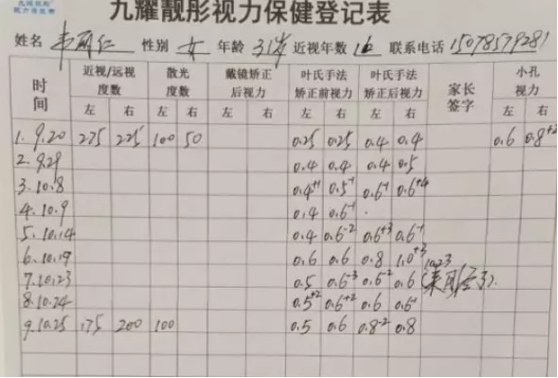 九耀靓彤视力保健登记表
姓名 性别 女 年龄 31岁 近视年数 16 联系电话 15078579281
时间 近视/远视度数 散光度数 戴镜矫正后视力 叶氏手法矫正前视力 叶氏手法矫正后视力 家长签字 小孔视力
左 右 左 右 左 右 左 右 左 右 左 右
1. 9.20 275 225 100 50 0.25 0.25 0.4 0.4 0.6 0.8+2
2. 9.29 0.4 0.4 0.4 0.5
3. 10.8 0.4+1 0.5-1 0.6-1 0.6+4
4. 10.9 0.4 0.6-1
5. 10.14 0.4 0.6-2 0.6+3 0.6-1
6. 10.19 0.6 0.6 0.8 1.0+3
7. 10.23 0.5 0.6-3 0.6-2 0.6 10.23
8. 10.24 0.5+2 0.6+2 0.6 0.6-1
9. 10.25 175 200 100 0.5 0.6 0.8-2 0.8